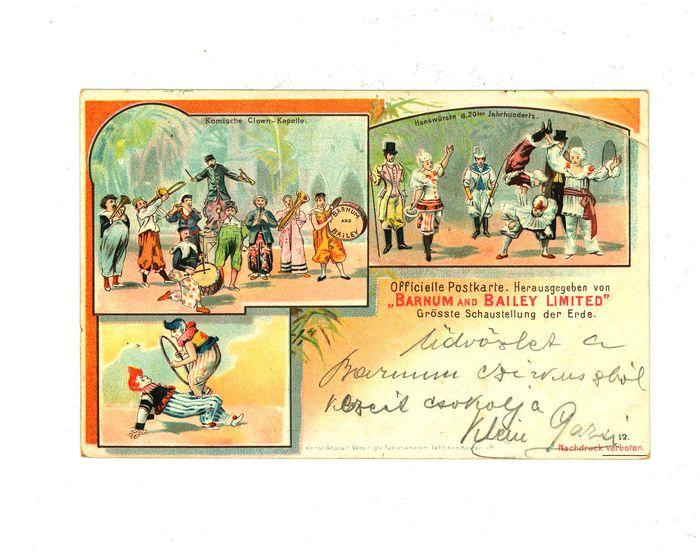 Komische Clown-Kapelle.
Hanswürste d. 20ten Jahrhunderts.
BARNUM
AND
BAILEY
Officielle Postkarte. Herausgegeben von
„BARNUM AND BAILEY LIMITED"
Grösste Schaustellung der Erde.
Üdvözlet a
Barnum czirkuszból
kezeit csokolja
Klein
12.
Nachdruck verboten.
Kunst Anstalt Vereinigte